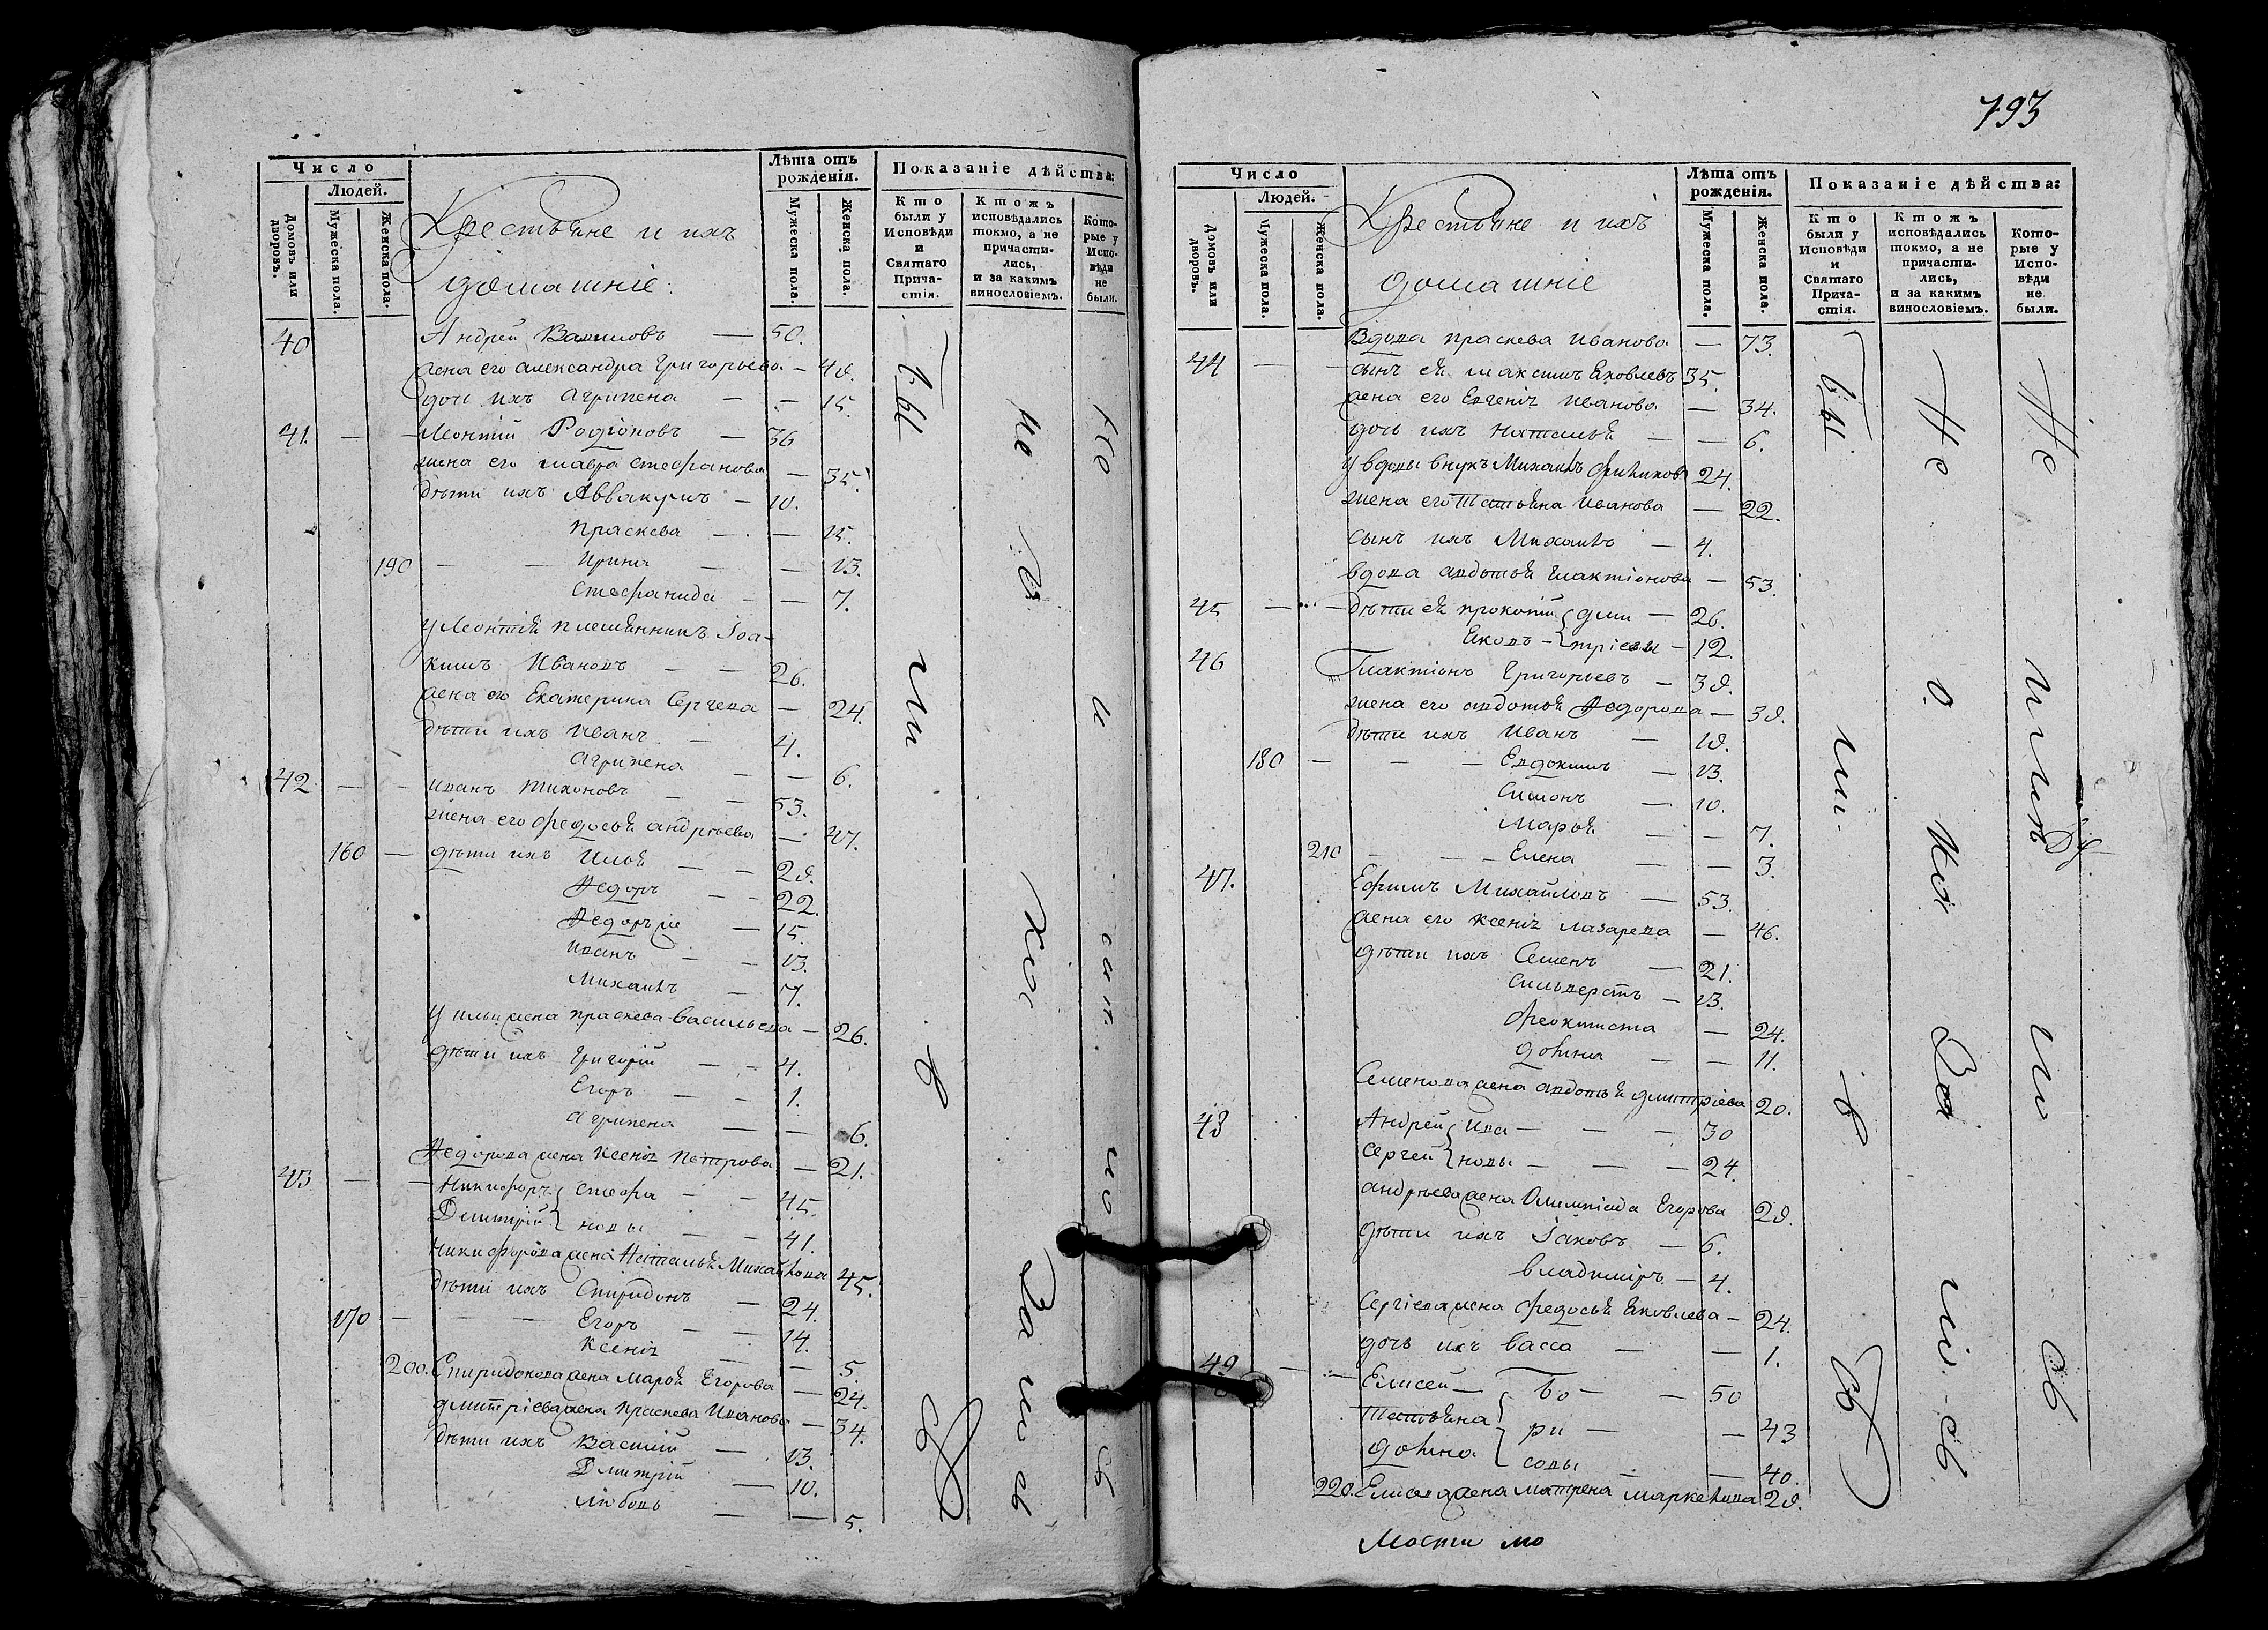 Число
Людей.
Домовъ или дворовъ.
Мужеска пола.
Женска пола.
Крестьяне и ихъ
домашніе:
Лѣта отъ рожденія.
Мужеска пола.
Женска пола.
Показаніе дѣйства:
Кто были у Исповѣди и Святаго Причастія.
Ктожъ исповѣдались токмо, а не причастились, и за какимъ винословіемъ.
Которые у Исповѣди не были.
40 Андрей Вавиловъ — 50.
жена его александра Григорьева — 48.
дочь ихъ Агрипена — — 15.
41. — — Леонтій Родіоновъ — 36
жена его мавра стефанова — 35.
дѣти ихъ Аввакумъ — 10.
праскева — — 15.
190 — — Ирина — — 13.
Стефанида — — 7.
у Леонтія племянникъ Іоа-
кимъ Ивановъ — — 26.
жена его Екатерина Сергѣева — 24.
дѣти ихъ Иванъ — 4.
Агрипена — — 6.
42 — — иванъ тихоновъ — — 53.
жена его федосья андрѣева — 47.
160 — дѣти ихъ Илья — — 28.
Ѳедоръ — — 22.
Ѳедоръ же — 15.
Иванъ — — 13.
Михаилъ — 7.
у ильи жена праскева васильева — 26.
дѣти ихъ Григорій — — 4.
Егоръ — — 1.
Агрипена — — 6.
Ѳедорова жена Ксенія петрова — 21.
43 — — Никифоръ } стефа — — 45.
Димитрій } новы — — 41.
Никифорова жена Наталья Михайлова 45.
дѣти ихъ Спиридонъ — 24.
170 — — — Егоръ — — 14.
Ксенія — — 5.
200. Спиридонова жена Марья Егорова — 24.
дмитріева жена праскева Иванова — 34.
дѣти ихъ Василій — 13.
Дмитрій — 10.
любовь — — 5.
бы
ли
в
св
не
за
не
и
793
Число
Людей.
Домовъ или дворовъ.
Мужеска пола.
Женска пола.
Крестьяне и ихъ
домашніе
Лѣта отъ рожденія.
Мужеска пола.
Женска пола.
Показаніе дѣйства:
Кто были у Исповѣди и Святаго Причастія.
Ктожъ исповѣдались токмо, а не причастились, и за какимъ винословіемъ.
Которые у Исповѣди не были.
Вдова праскева иванова — 73.
44 — — сынъ ея максимъ Яковлевъ 35.
жена его Евгенія иванова — 34.
дочь ихъ наталья — — 6.
у вдовы внукъ Михаилъ 24.
жена его Татьяна иванова — 22.
сынъ ихъ Михаилъ — 4.
вдова авдотья Галактіонова — 53.
45 — — дѣти ея прокопій } дми — 26.
Яковъ — } тріевы — 12.
46 Галактіонъ Григорьевъ — 38.
жена его авдотья Ѳедорова — 38.
дѣти ихъ Иванъ — 18.
180 — — — Евдокимъ — 13.
Симонъ — 10.
Марья — — 7.
210 — — — Елена — — 3.
47. Ефимъ Михайловъ — 53.
жена его Ксенія лазарева — 46.
дѣти ихъ Семенъ — 21.
Сильверстъ — 13.
феоктиста — 24.
домна — — 11.
Семенова жена авдотья дмитріева 20.
48 Андрей } Ива — — — 30
Сергей } новы — — — 24.
андрѣева жена Олимпіада Егорова 28.
дѣти ихъ Іаковъ — 6.
Владимиръ — 4.
Сергіева жена федосья Яковлева — 24.
дочь ихъ васса — — 1.
49 — — Елисей — } бо — — 50
Татьяна } ри — — 43
домна } совы — — 40.
220. Елисея жена матрена маркелова 28.
Мости мо
бы
ли
в
св
не
Не